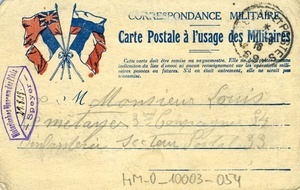 CORRESPONDANCE MILITAIRE
Carte Postale à l'usage des Militaires
Cette carte doit être remise au vaguemestre. Elle ne doit porter aucune
indication du lieu d'envoi ni aucun renseignement sur les opérations
militaires passées ou futures. S'il en était autrement, elle ne serait pas
transmise.
M Monsieur Louis
métayer 3e Compagnie 84
infanterie Secteur Postal 93
MM-0_10003-054